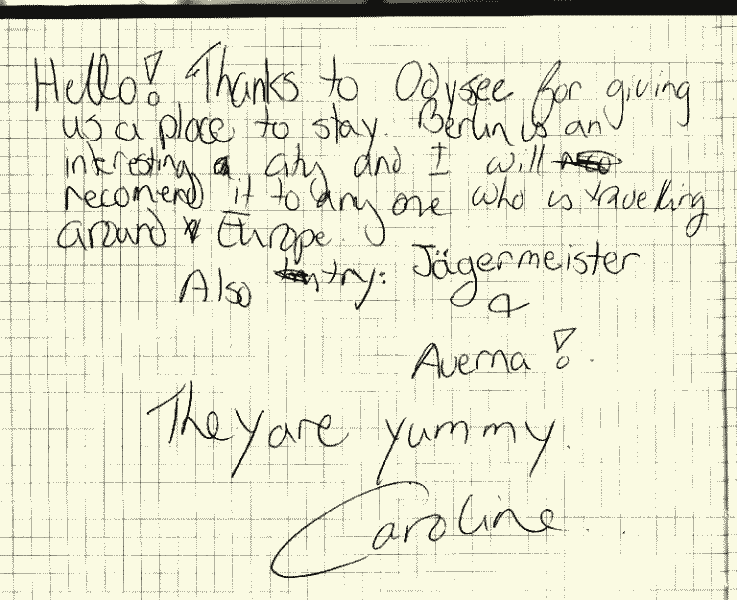 Hello! Thanks to Odysee for giving
us a place to stay. Berlin is an
interesting city and I will
recomend it to any one who is travelling
around Europe.
Also try: Jägermeister
&
Averna!
They are yummy.
Caroline